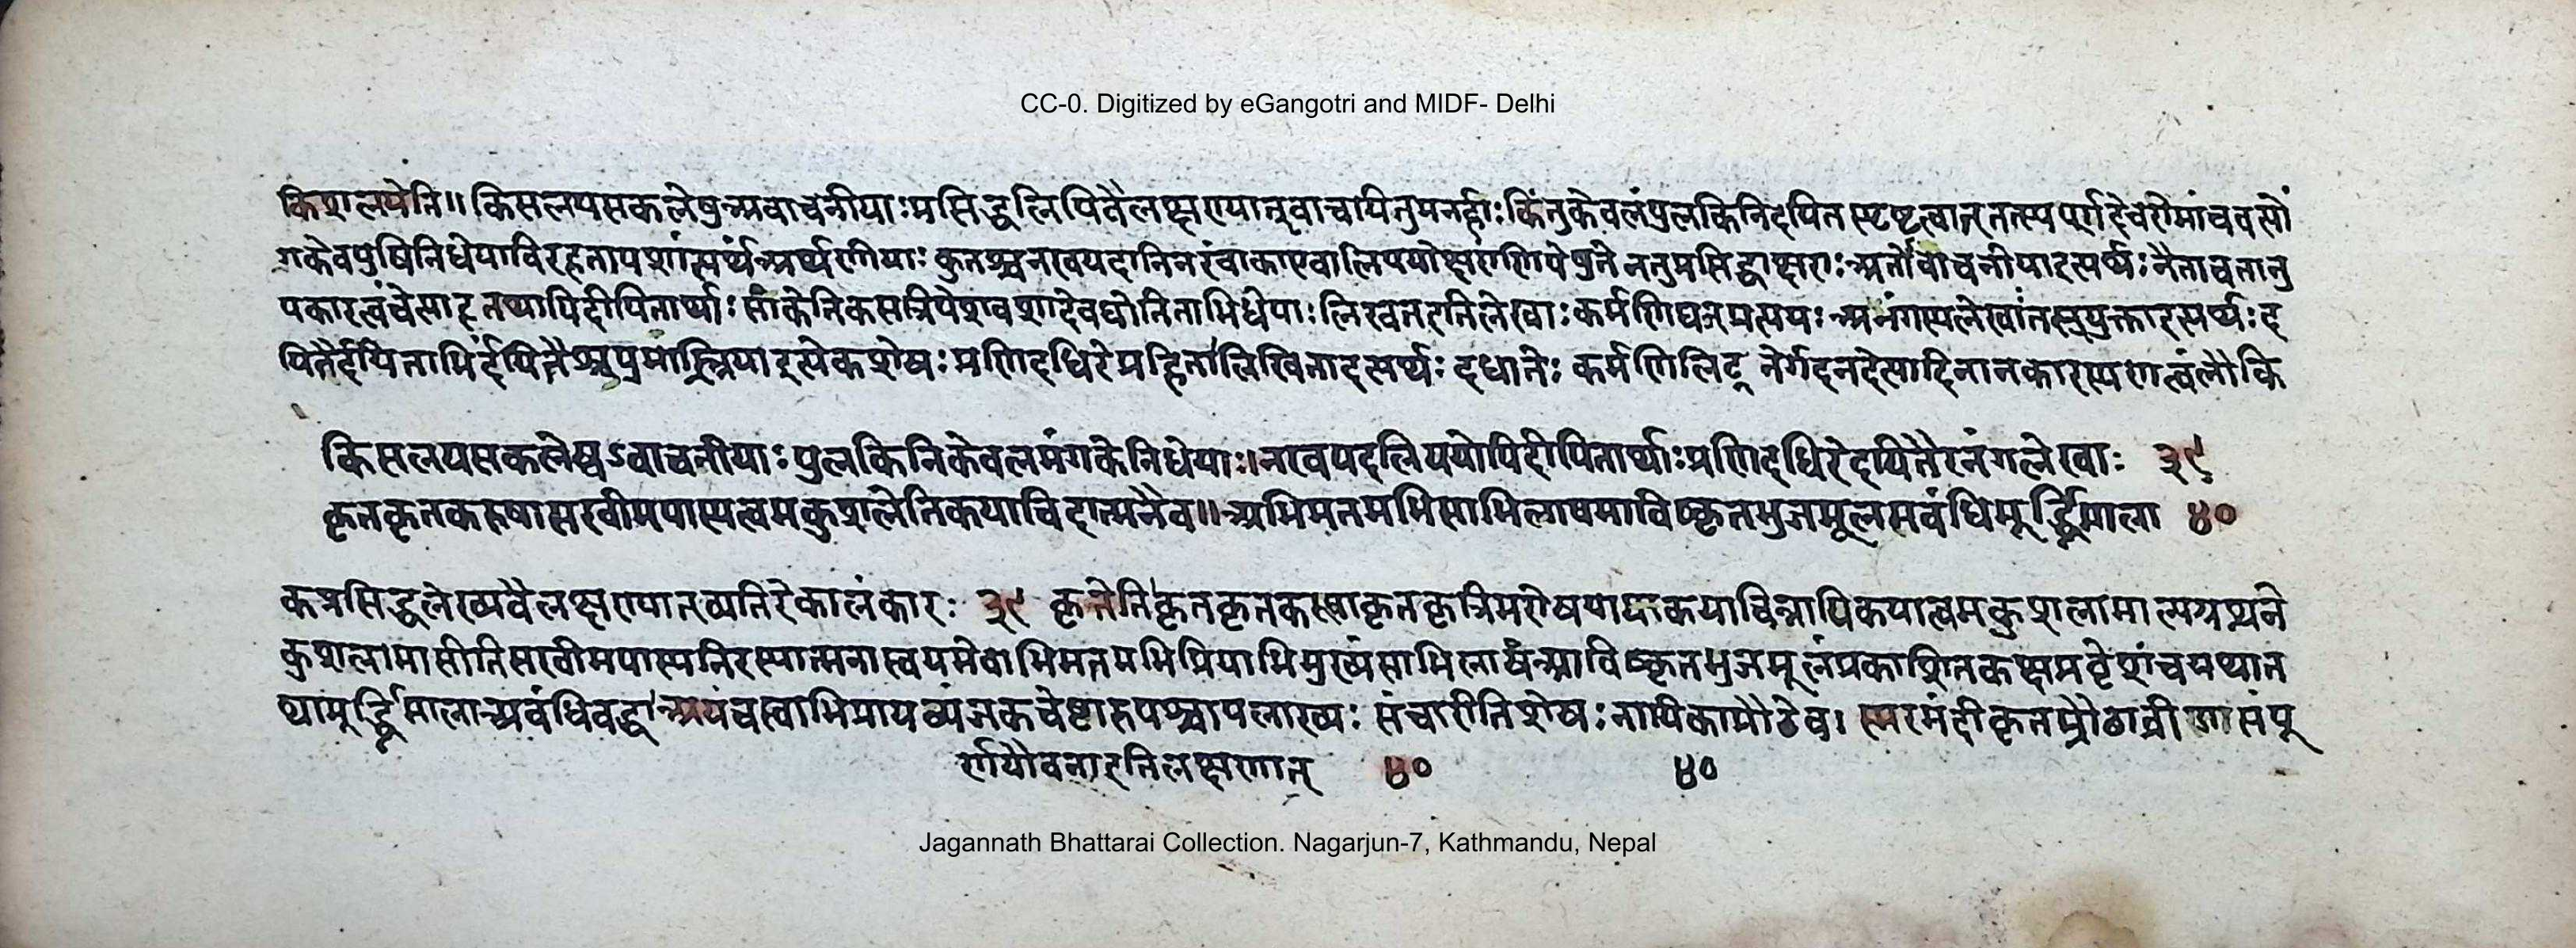 CC-0. Digitized by eGangotri and MIDF- Delhi
किशलयेति॥ किसलयसकलेषुअवाचनीयाः प्रसिद्धलिपितैलक्षण्यान्नवाचायितुमनर्हाः किंतुकेवलंपुलकिनि
गकेवपुषिनिधेया कुतश्चनखपदानि ननुप्रसिद्धाक्षराः नैतावतानु
पकारत्वंचेत्याह तथापिदीपितार्थाः सांकेतिकसन्निपेशवशादेवद्योतिताभिधेयाः लिखनइतिलेखाः कर्मणिघञ्प्रत्ययः अनंगस्यलेखांतस्वयुक्ताइत्यर्थः द
यितैर्दयिताभिर्दयितैश्च पुमांस्त्रियाइत्येकशेषः प्रणिदधिरेप्रहितालिखिताइत्यर्थः दधातेः कर्मणिलिट् नेर्गदनदेत्यादिनानकारस्यणत्वंलौकि
किसलयसकलेष्वऽवाचनीयाः पुलकिनिकेवलमंगकेनिधेयाः॥नखपदलिपयोपिदीपितार्थाःप्रणिदधिरेदयितैरनंगलेखाः ३९
कृतकृतकरुषासखीमपास्यत्वमकुशलेतिकयाचिदात्मनैव॥अभिमतमभिसाभिलाषमाविष्कृतभुजमूलमवंधिमूर्द्ध्निमाला ४०
कप्रसिद्धलेख्यवैलक्षण्यातव्यतिरेकालंकारः ३९ कृतेतिकृतकृतकरुषाकृतकृत्रिमरोषया कयाचिन्नायिकयात्वमकुशलामाल्यग्रथने
कुशलामासीतिसखीमपास्यनिरस्यात्मनास्वयमेवाभिमतमभिप्रियाभिमुख्यंसाभिलाषंआविष्कृतभुजमूलंप्रकाशितकक्षप्रदेशंचयथात
थामूर्द्ध्निमालाअवंधिवद्धाअयंचस्वाभिप्रायव्यंजकचेष्टारुपश्चापलाख्यः संचारीतिशेषः नायिकाप्रौढैव। स्मरमंदीकृतप्रौढाव्रीडासंपू
र्णयौवनाइतिलक्षणात् ४० ४०
Jagannath Bhattarai Collection. Nagarjun-7, Kathmandu, Nepal